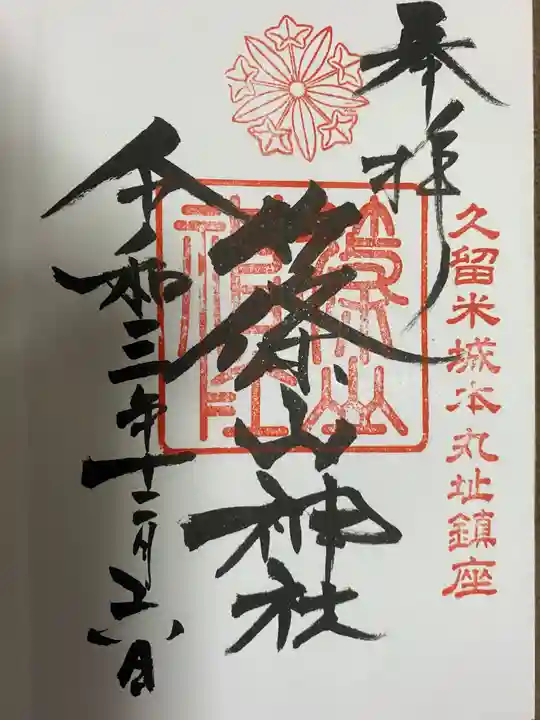 奉拝
久留米城本丸址鎮座
篠山神社
篠山神社
令和三年十二月
日